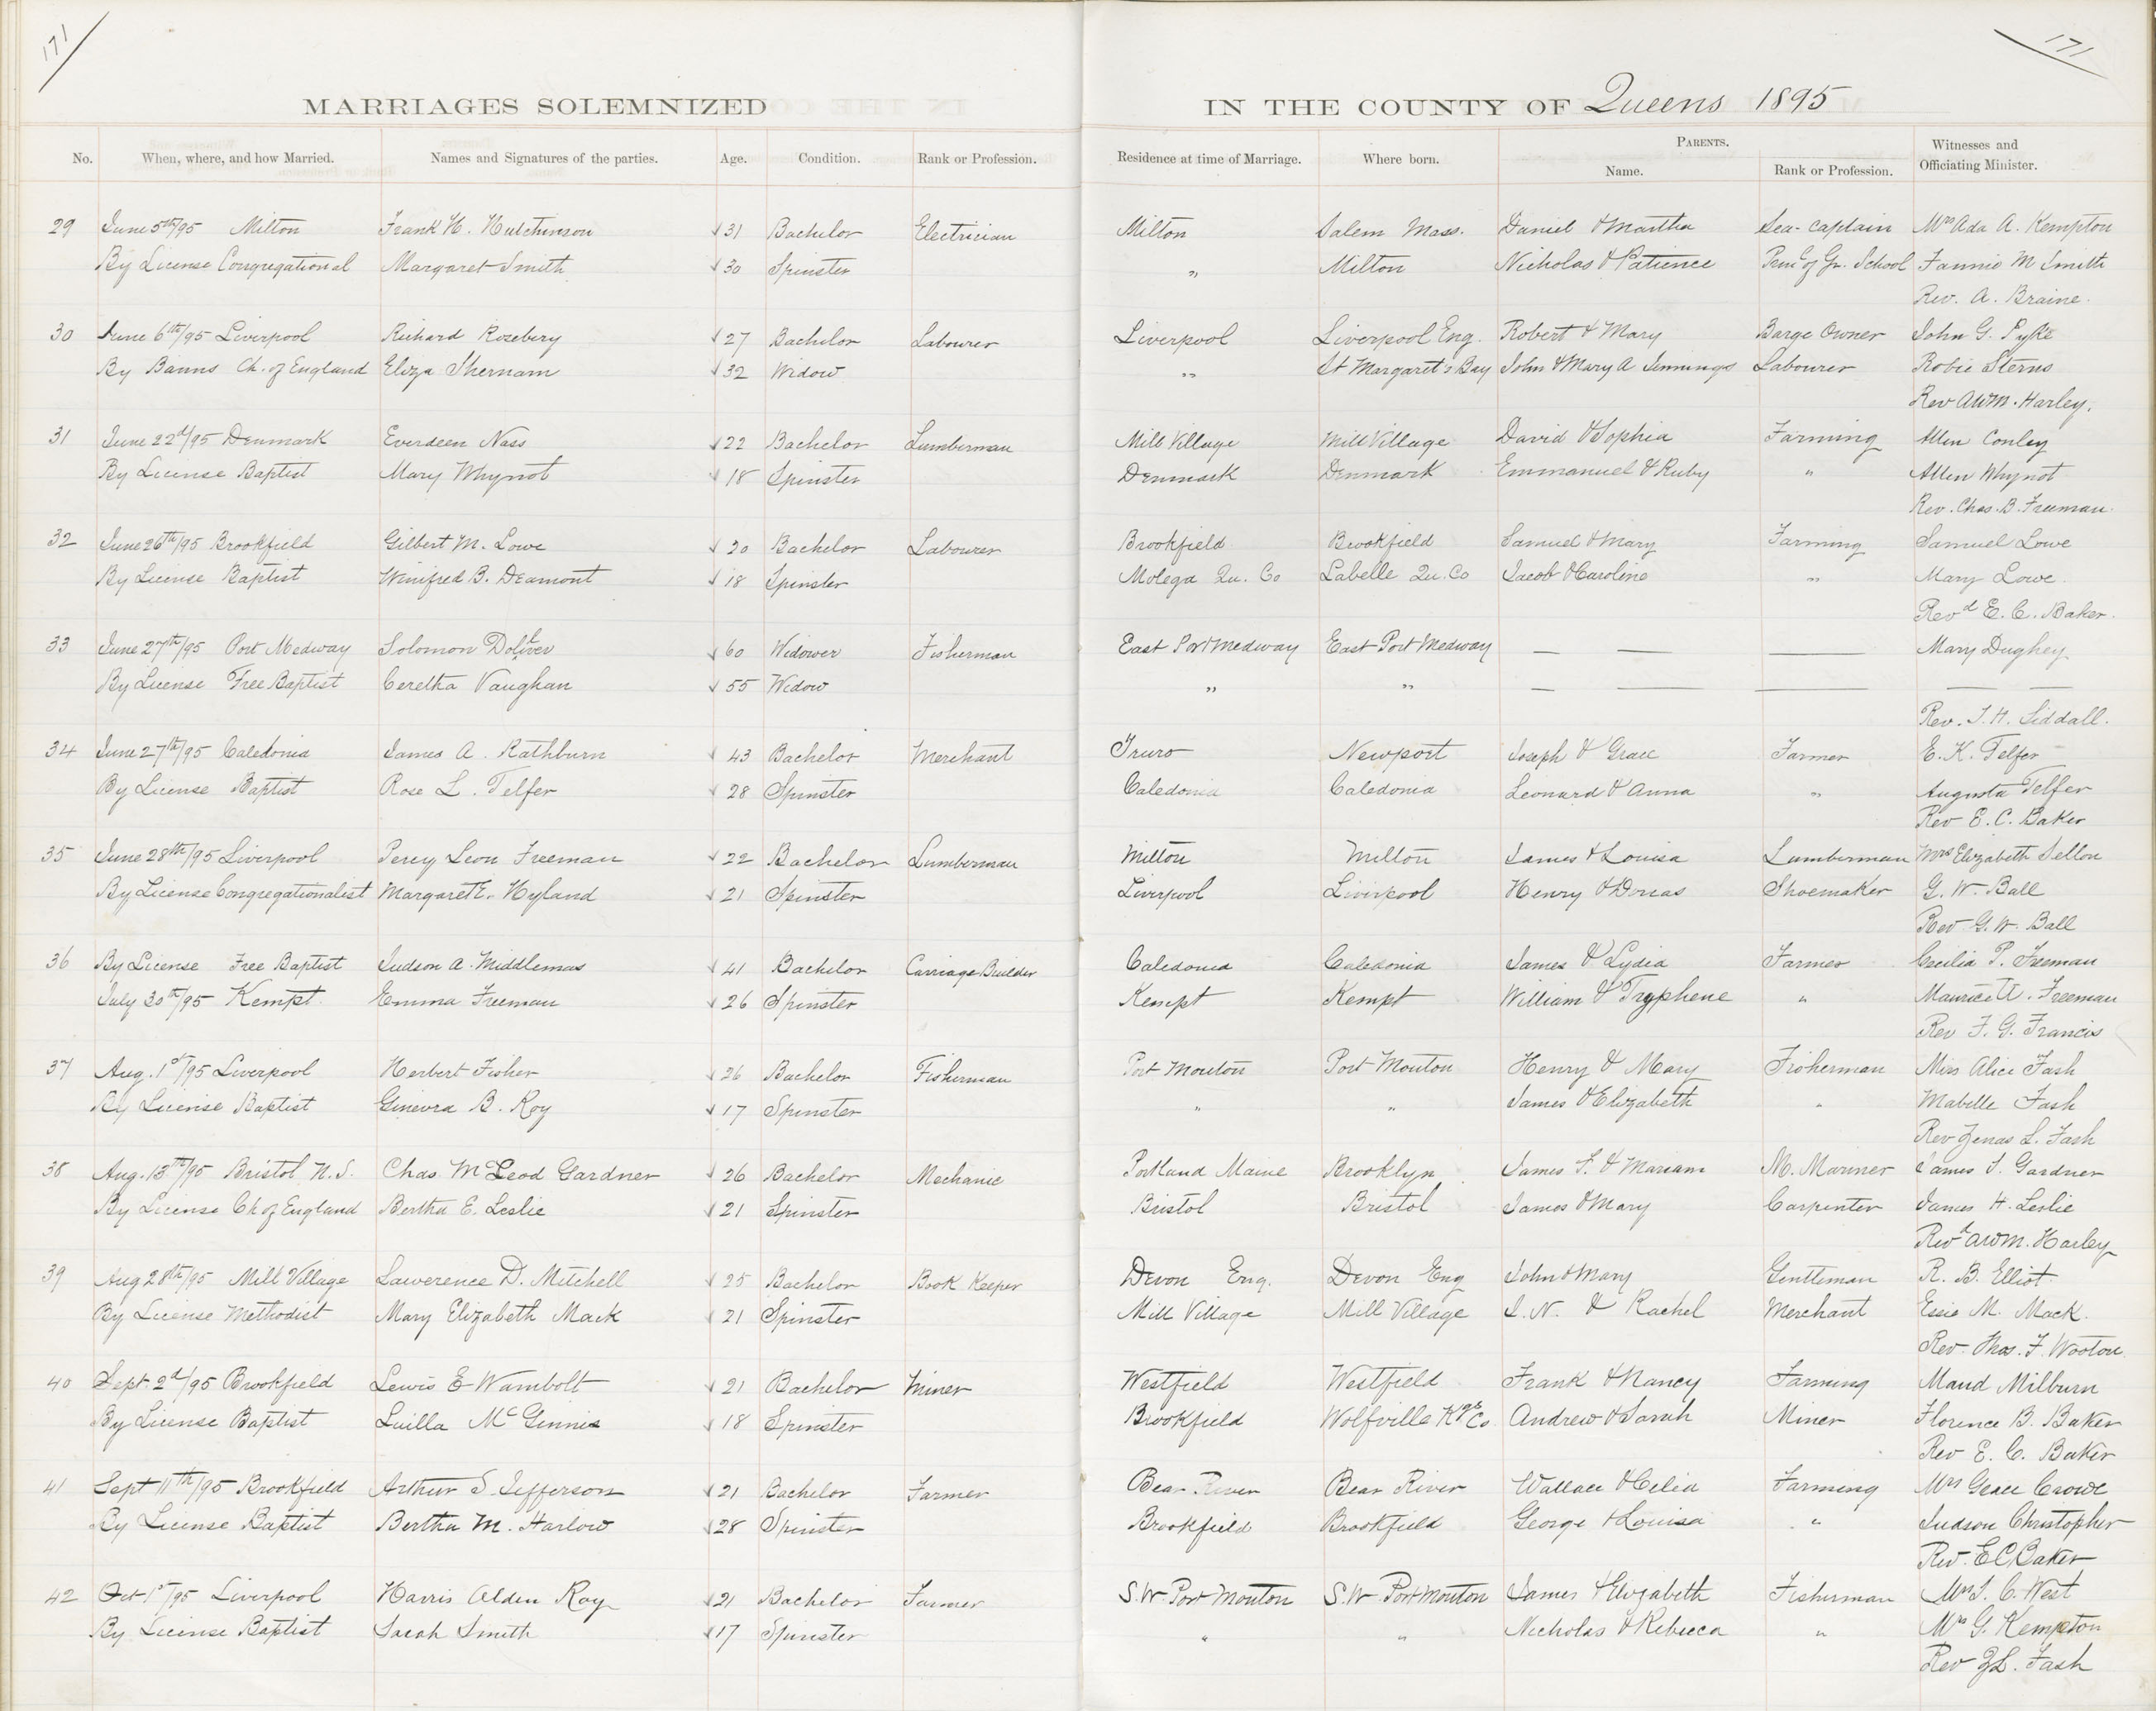 171 171
MARRIAGES SOLEMNIZED IN THE COUNTY OF Queens 1895
No. When, where, and how Married. Names and Signatures of the parties. Age. Condition. Rank or Profession. Residence at time of Marriage. Where born. PARENTS. Name. Rank or Profession. Witnesses and Officiating Minister.
29 June 5th/95 Milton Frank H. Hutchinson √31 Bachelor Electrician Milton Salem Mass. Daniel & Martha Sea-Captain Mrs Ada A. Kempton
By License Congregational Margaret Smith √30 Spinster " Milton Nicholas & Patience of Gr. School Fannie M Smith
Rev. A. Braine.
30 June 6th/95 Liverpool Richard Rosebery √27 Bachelor Labourer Liverpool Liverpool Eng. Robert & Mary Barge Owner John G. Pyke
By Banns Ch. of England Eliza Shernam √32 Widow " St Margaret's Bay John & Mary A Jennings Labourer Robie Sterns
Rev AWM. Harley.
31 June 22d/95 Denmark Everdeen Nass √22 Bachelor Lumberman Mill Village Mill Village David & Sophia Farming Allen Conley
By License Baptist Mary Whynot √18 Spinster Denmark Denmark Emmanuel & Ruby " Allen Whynot
Rev. Chas. B. Freeman.
32 June 26th/95 Brookfield Gilbert M. Lowe √20 Bachelor Labourer Brookfield Brookfield Samuel & Mary Farming Samuel Lowe
By License Baptist Winifred B. Deamont √18 Spinster Molega Qu. Co Labelle Qu. Co Jacob & Caroline " Mary Lowe.
Revd E. C. Baker.
33 June 27th/95 Port Medway Solomon Doliver √60 Widower Fisherman East Port Medway East Port Medway — — — Mary Dughey
By License Free Baptist Ceretha Vaughan √55 Widow " " — — — — —
Rev. J. H. Siddall.
34 June 27th/95 Caledonia James A. Rathburn √43 Bachelor Merchant Truro Newport Joseph & Grace Farmer E. K. Telfer
By License Baptist Rose L. Telfer √28 Spinster Caledonia Caledonia Leonard & Anna " Augusta Telfer
Rev E. C. Baker
35 June 28th/95 Liverpool Percy Leon Freeman √22 Bachelor Lumberman Milton Milton James & Louisa Lumberman Mrs Elizabeth Sellon
By License Congregationalist Margaret E. Hyland √21 Spinster Liverpool Liverpool Henry & Dorcas Shoemaker G. W. Ball
Rev G. W. Ball
36 By License Free Baptist Judson A. Middlemas √41 Bachelor Carriage Builder Caledonia Caledonia James & Lydia Farmer Cecilia P. Freeman
July 30th/95 Kempt. Emma Freeman √26 Spinster Kempt Kempt William & Tryphene " Maurice A. Freeman
Rev F. G. Francis
37 Aug. 1st/95 Liverpool Herbert Fisher √26 Bachelor Fisherman Port Mouton Port Mouton Henry & Mary Fisherman Miss Alice Fash
By License Baptist Ginevra B. Roy √17 Spinster " " James & Elizabeth " Mabelle Fash
Rev Zenas L. Fash
38 Aug. 13th/95 Bristol N.S. Chas. McLeod Gardner √26 Bachelor Mechanic Portland Maine Brooklyn James F. & Mariam M. Mariner James F. Gardner
By License Ch of England Bertha E. Leslie √21 Spinster Bristol Bristol James & Mary Carpenter James H. Leslie
Revd AWM. Harley
39 Aug 28th/95 Mill Village Lawerence D. Mitchell √25 Bachelor Book Keeper Devon Eng. Devon Eng John & Mary Gentleman R. B. Elliot
By License Methodist Mary Elizabeth Mack √21 Spinster Mill Village Mill Village J. N. & Rachel Merchant Essie M. Mack.
Rev. Thos. F. Wooton
40 Sept. 2d/95 Brookfield Lewis E Wambolt √21 Bachelor Miner Westfield Westfield Frank & Nancy Farming Maud Milburn
By License Baptist Luilla McGinnis √18 Spinster Brookfield Wolfville Kgs Co. Andrew & Sarah Miner Florence B. Baker
Rev E. C. Baker
41 Sept 11th/95 Brookfield Arthur S. Jefferson √21 Bachelor Farmer Bear River Bear River Wallace & Celia Farming Mrs Grace Crowe
By License Baptist Bertha M. Harlow √28 Spinster Brookfield Brookfield George & Louisa " Judson Christopher
Rev. E C Baker
42 Oct 1st/95 Liverpool Harris Alden Roy √21 Bachelor Farmer S.W. Port Mouton S.W. Port Mouton James & Elizabeth Fisherman Mrs J. C. West
By License Baptist Sarah Smith √17 Spinster " " Nicholas & Rebecca " Mrs G. Kempton
Rev Z L. Fash